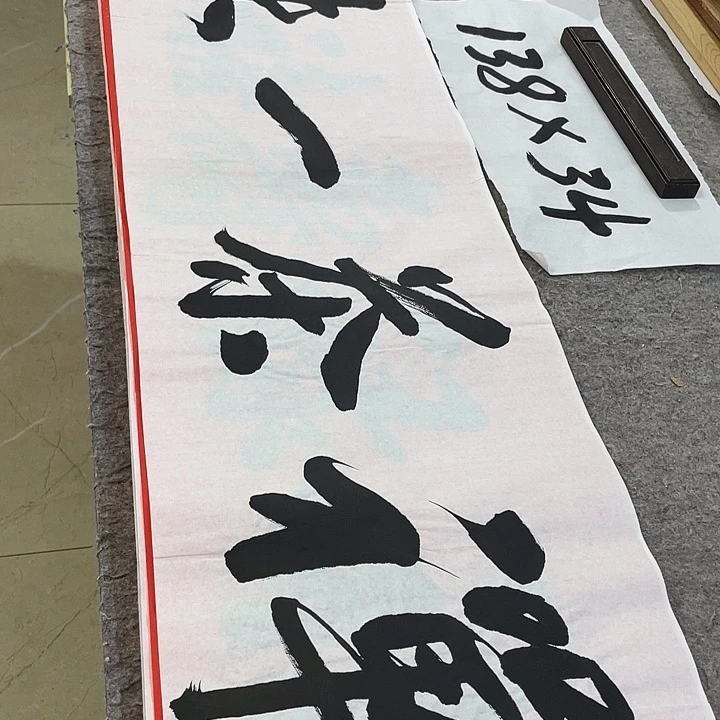 禪茶一
138×34